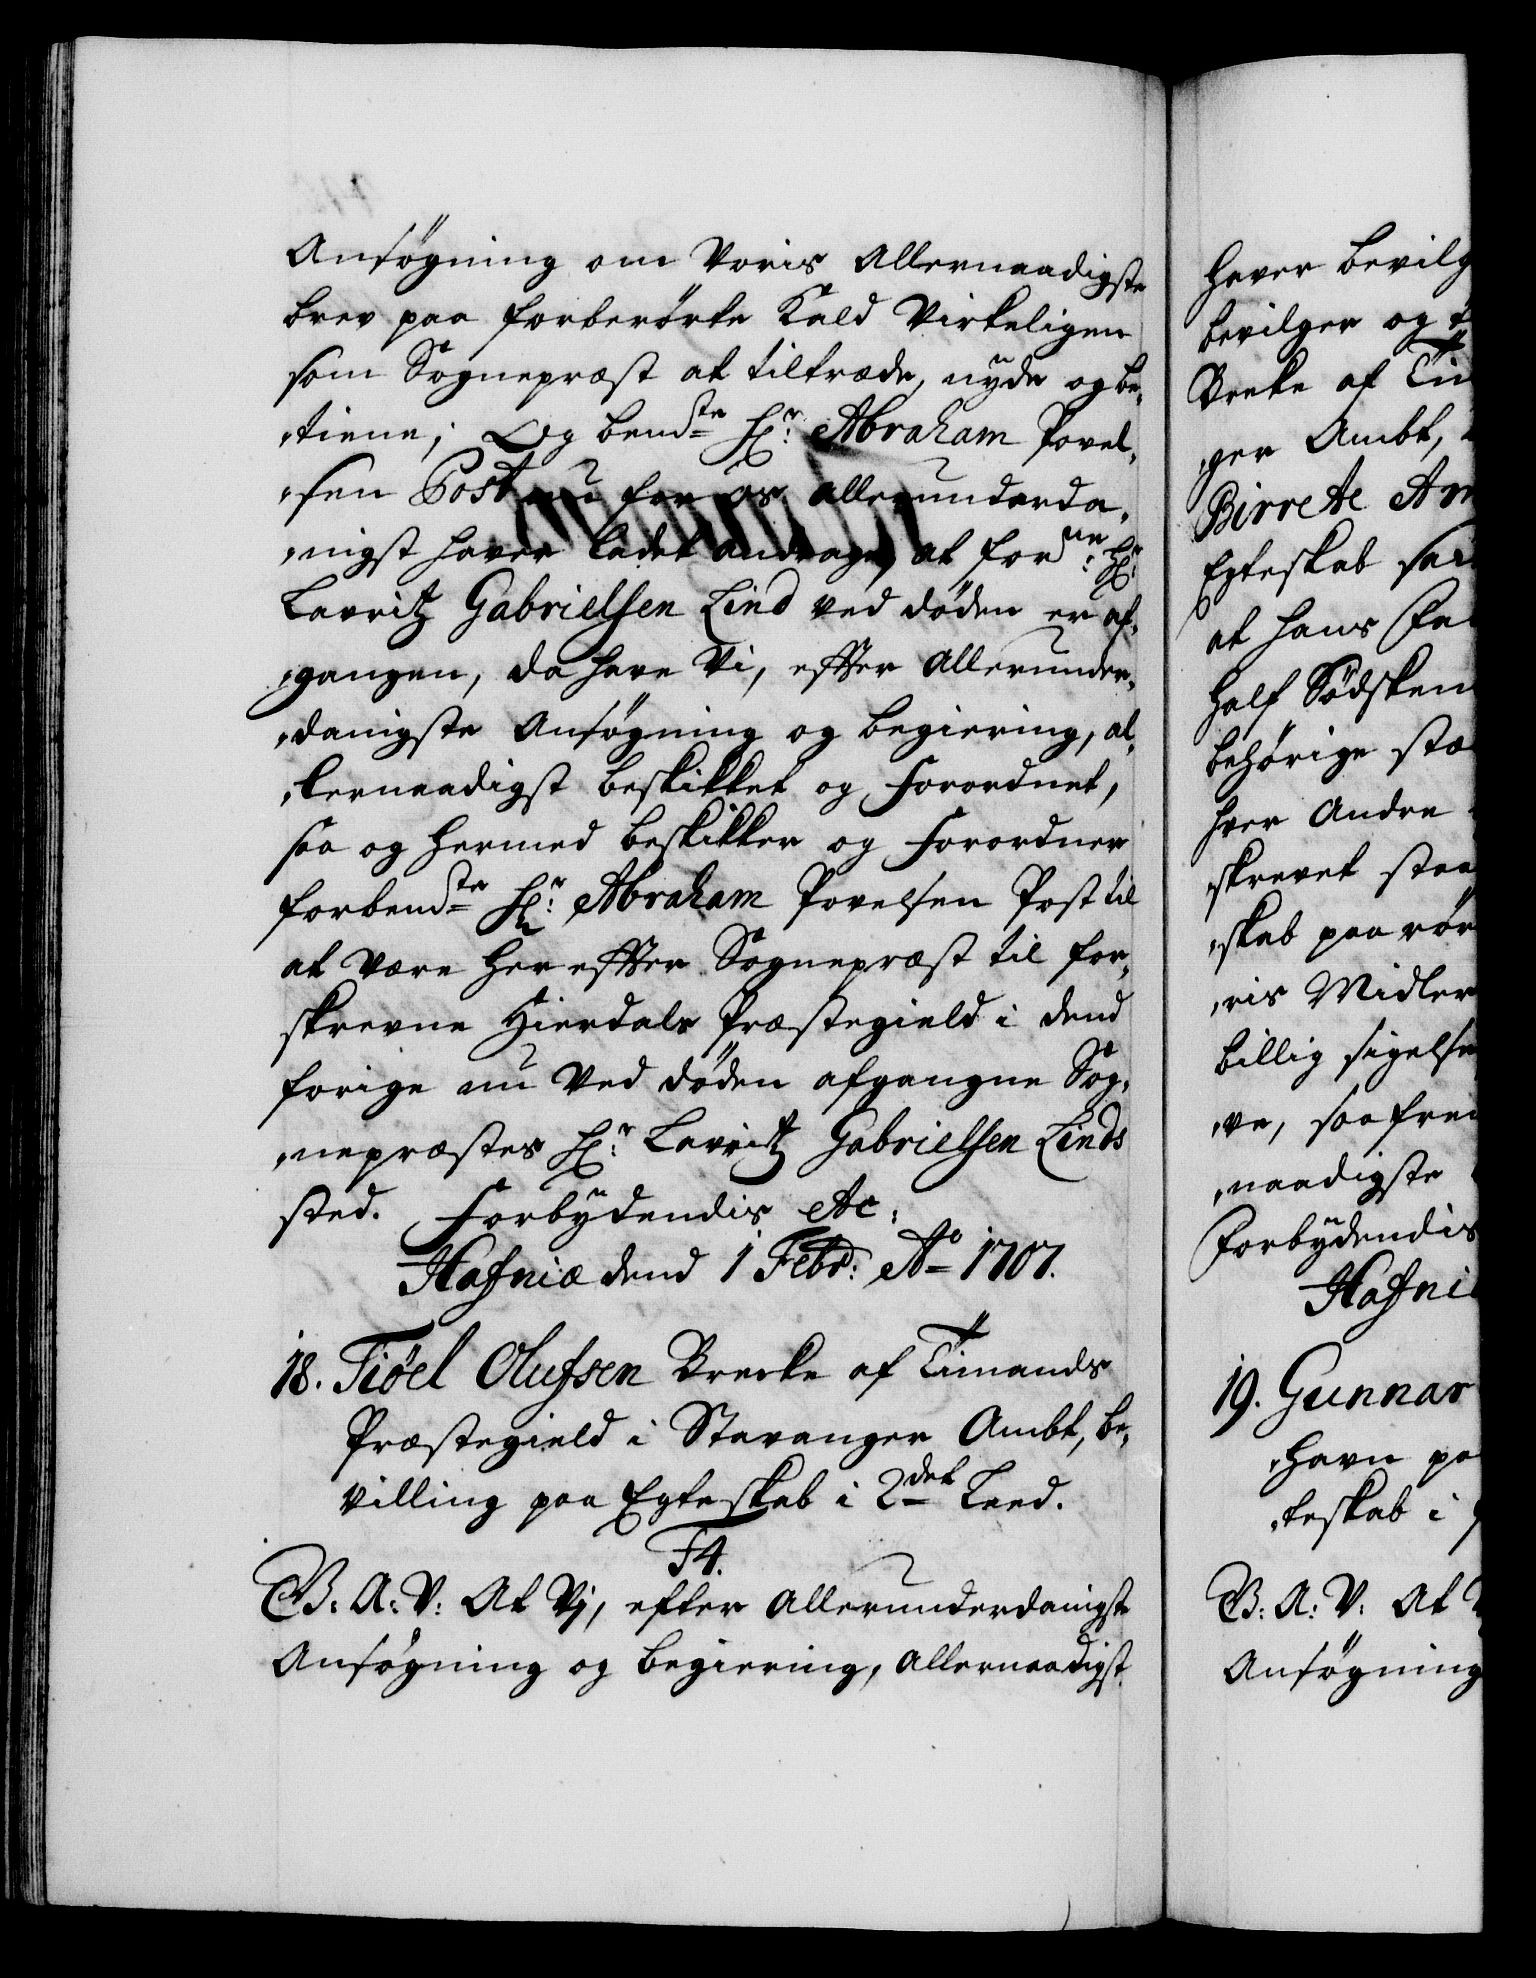 Ansøgning om Voris Allernaadigste
brev paa forberørte Kald Virkeligen
som Sognepræst at tiltræde, nyde og be,
,tiene; Og bemdte Hr: Abraham Povel,
,sen Post nu for os allerunderda,
,nigst haver ladet andrage, at forne: Hr:
Lavritz Gabrielsen Lind ved døden er af,
,gangen, da have Vi, effter Allerunder,
,danigste Ansøgning og begiering, al,
,lernaadigst beskikket og Forordnet,
saa og hermed beskikker og Forordner
forbemdte Hr: Abraham Povelsen Post til
at være her effter Sognepræst til for,
skrevne Hierdals Præstegield i dend
forige nu Ved døden afgangne Sog,
,nepræstes Hr: Lavritz Gabrielsen Linds
sted. Forbydendis etc:
Hafniæ dend 1 Febr: Ao 1707.
18. Tiøel Olufsen Brecke af Timands
Præstegield i Stavanger Ambt, be,
villing paa Egteskab i 2det Leed.
F4.
G: A: V: At Vj, efter Allerunderdanigste
Ansøgning og begiering, Allernaadigst
haver bevilg
bevilger og
af Ti
,ger Ambt,
Birrete
Egteskab
at hans
half Sødsken
behørige stæ
hver Andre
skrevet staa
,skab paa rør
,ris Midler
billig sigelse
,ve, saafre
,naadigste
Forbydendis
Hafni
19. Gunnar
,havn pa
,teskab i
G: A: V: At
Ansøgning